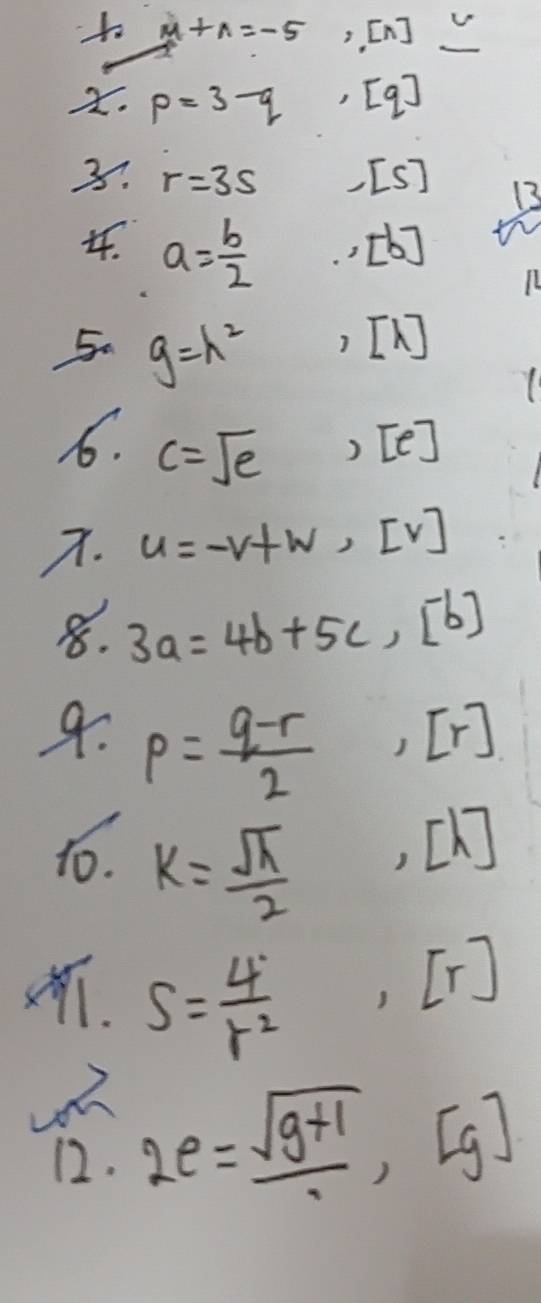 1. m+n=-5 , [n]
2. p=3-q , [q]
3. r=3s , [s]
4. a=b/2 , [b]
5. g=h² , [h]
6. c=√e , [e]
7. u=-v+w , [v]
8. 3a=4b+5c, [b]
9. p=(q-r)/2 , [r]
10. k=√h/2 , [h]
11. s=4/r² , [r]
12. 2e=√(g+1)/ , [g]
13